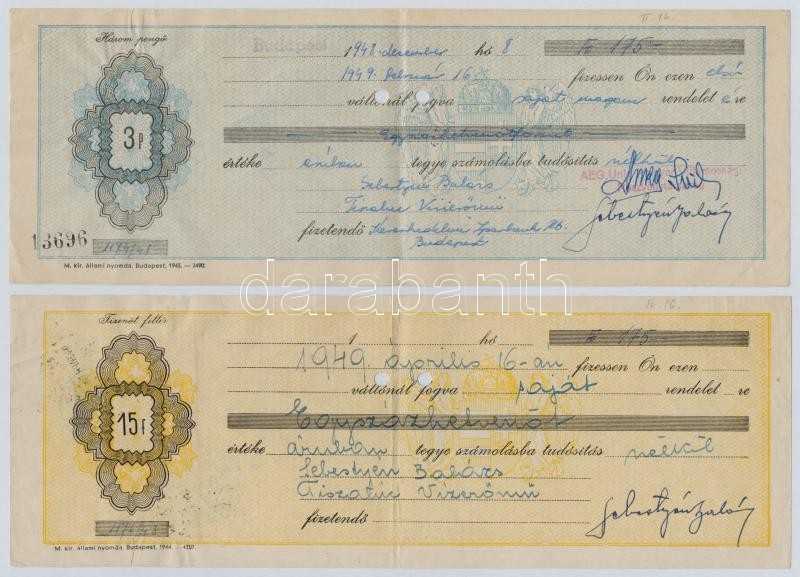 II. 16.
Három pengő
Budapest 1948 december hó 8 Ft 175-
1949. február 16. fizessen Ön ezen első
váltónál fogva saját magam rendelet é re
Egyszázhetvenötforint
3P
értéke áruban tegye számolásba tudósítás nélkül
Sebestyén Balázs
AEG Unió
Tiszalúc Vízerőmű
13696
fizetendő Kereskedelmi Iparbank Rt.
Budapest
Sebestyén Balázs
M. kir. állami nyomda. Budapest, 1943. — 2490.
darabanth
IV. 16.
Tizenöt fillér
1 hó Ft 175-
1949 április 16-án fizessen Ön ezen
váltónál fogva saját rendelet re
Egyszázhetvenöt
15f
értéke áruban tegye számolásba tudósítás nélkül
Sebestyén Balázs
Tiszalúc Vízerőmű
fizetendő
Sebestyén Balázs
M. kir. állami nyomda. Budapest, 1944. — 4207.